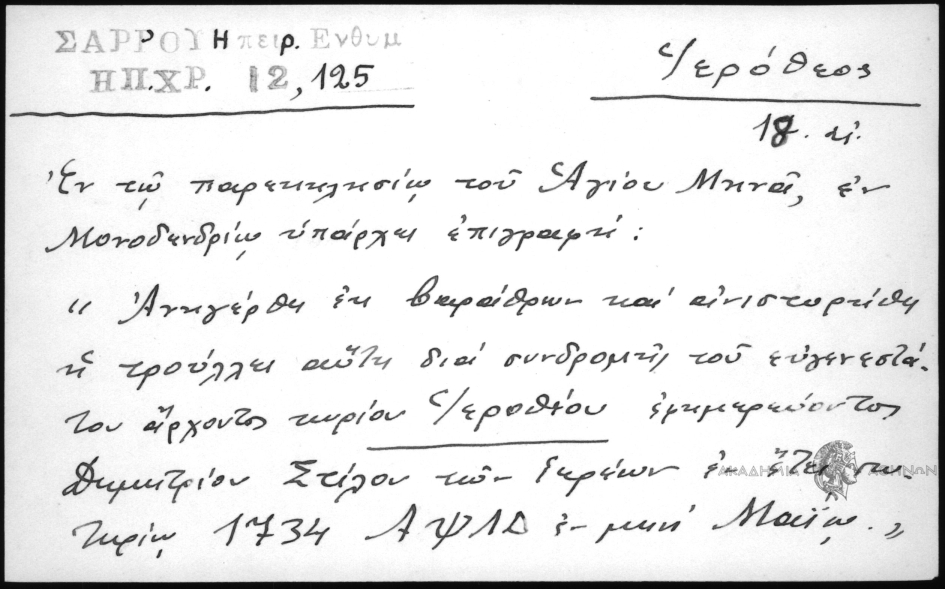 ΣΑΡΡΟΥ Ηπειρ. Ενθυμ
ΗΠ.ΧΡ. 12, 125
Ἱερόθεος
18. αἰ.
Ἐν τῷ παρεκκλησίῳ τοῦ Ἁγίου Μηνᾶ, ἐν
Μονοδενδρίῳ ὑπάρχει ἐπιγραφή:
« Ἀνηγέρθη ἐκ βαράθρων καί ἀνιστορήθη
ἡ τρούλλα αὕτη διά συνδρομῆς τοῦ εὐγενεστά-
του ἄρχοντος κυρίου Ἱεροθέου ἐφημερεύοντος
Δημητρίου Στίλου τῶν ἱερέων ἐν ἔτει σω-
τηρίῳ 1734 ΑΨΛΔ ἐν μηνί Μαΐῳ. »
ΑΚΑΔΗΜΙΑ ΑΘΗΝΩΝ